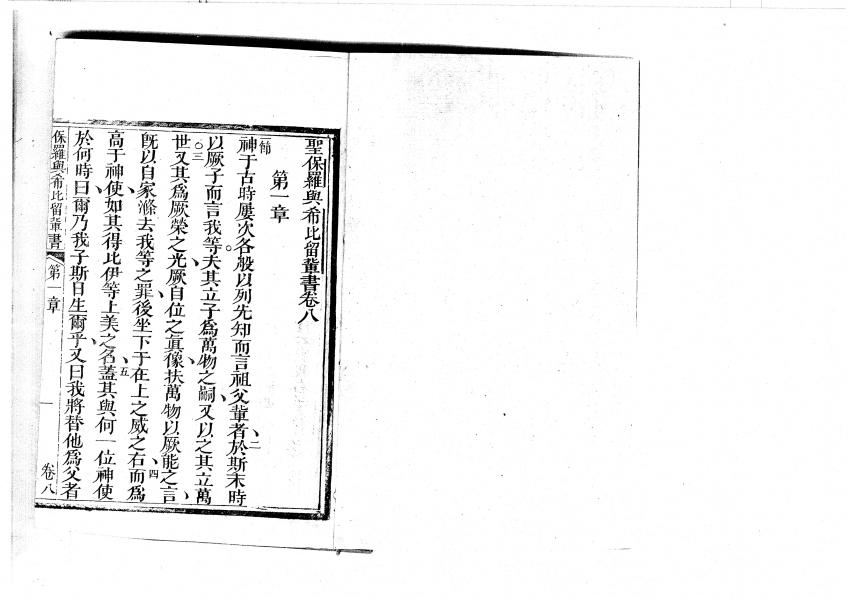 聖保羅與希比留輩書卷八
第一章
節神于古時屢次各般以列先知而言祖父輩者、二於斯末時
以厥子而言我等。夫其立子爲萬物之嗣、又以之其立萬
世○三又其爲厥榮之光、厥自位之眞像、扶萬物以厥能之言、
既以自家滌去我等之罪、後坐下于在上之威之右、四而爲
高于神使、如其得比伊等上美之名、五蓋其與何一位神使
於何時曰、爾乃我子、斯日生爾乎、又曰、我將替他爲父者
保羅與希比留輩書 第一章 一 卷八